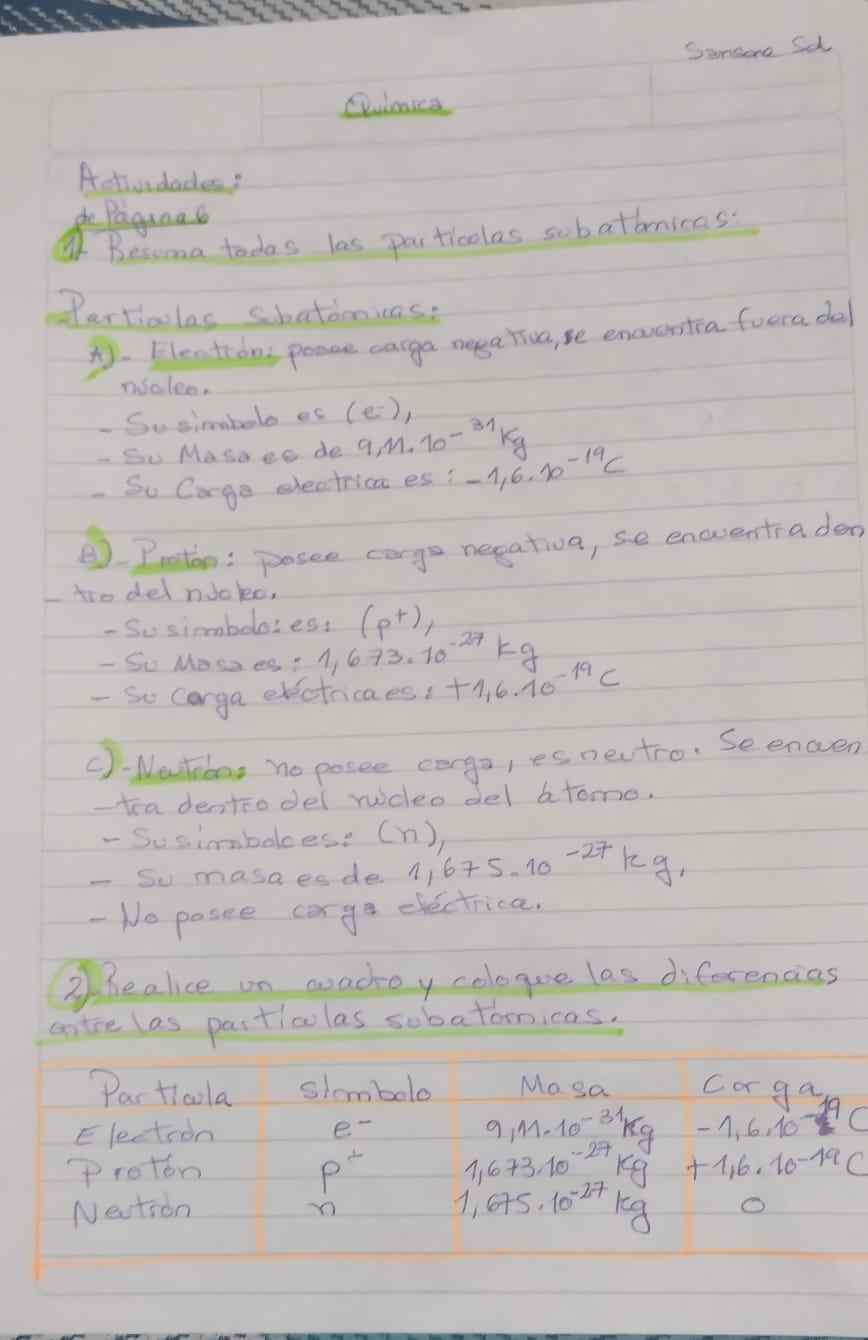 Química
Actividades:
de Página 6
1) Resuma todas las partículas subatómicas.
Partículas Subatómicas:
A)- Electrón: posee carga negativa, se encuentra fuera del
núcleo.
- Su simbolo es (e-),
- Su Masa es de 9,11.10-³¹ Kg
- Su Carga electrica es: -1,6.10⁻¹⁹C
B)- Protón: posee carga negativa, se encuentra den
-tro del núcleo.
- Su simbolo: es: (p⁺),
- Su Masa es: 1,673.10⁻²⁷ kg
- Su carga eléctrica es: +1,6.10⁻¹⁹ C
C)-Neutrón: no posee carga, es neutro. Se encuen
-tra dentro del núcleo del átomo.
- Su simbolo es: (n),
- Su masa es de 1,675.10⁻²⁷ kg,
- No posee carga eléctrica.
2) Realice un cuadro y coloque las diferencias
entre las partículas subatómicas.
Partícula Símbolo Masa Carga
Electrón e⁻ 9,11.10⁻³¹ Kg -1,6.10⁻¹⁹ C
Protón p⁺ 1,673.10⁻²⁷ kg +1,6.10⁻¹⁹ C
Neutrón n 1,675.10⁻²⁷ kg 0